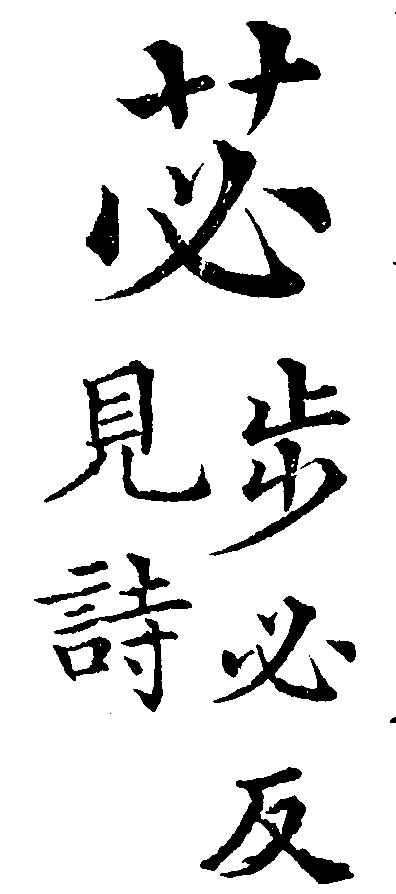 苾
步必反
見詩